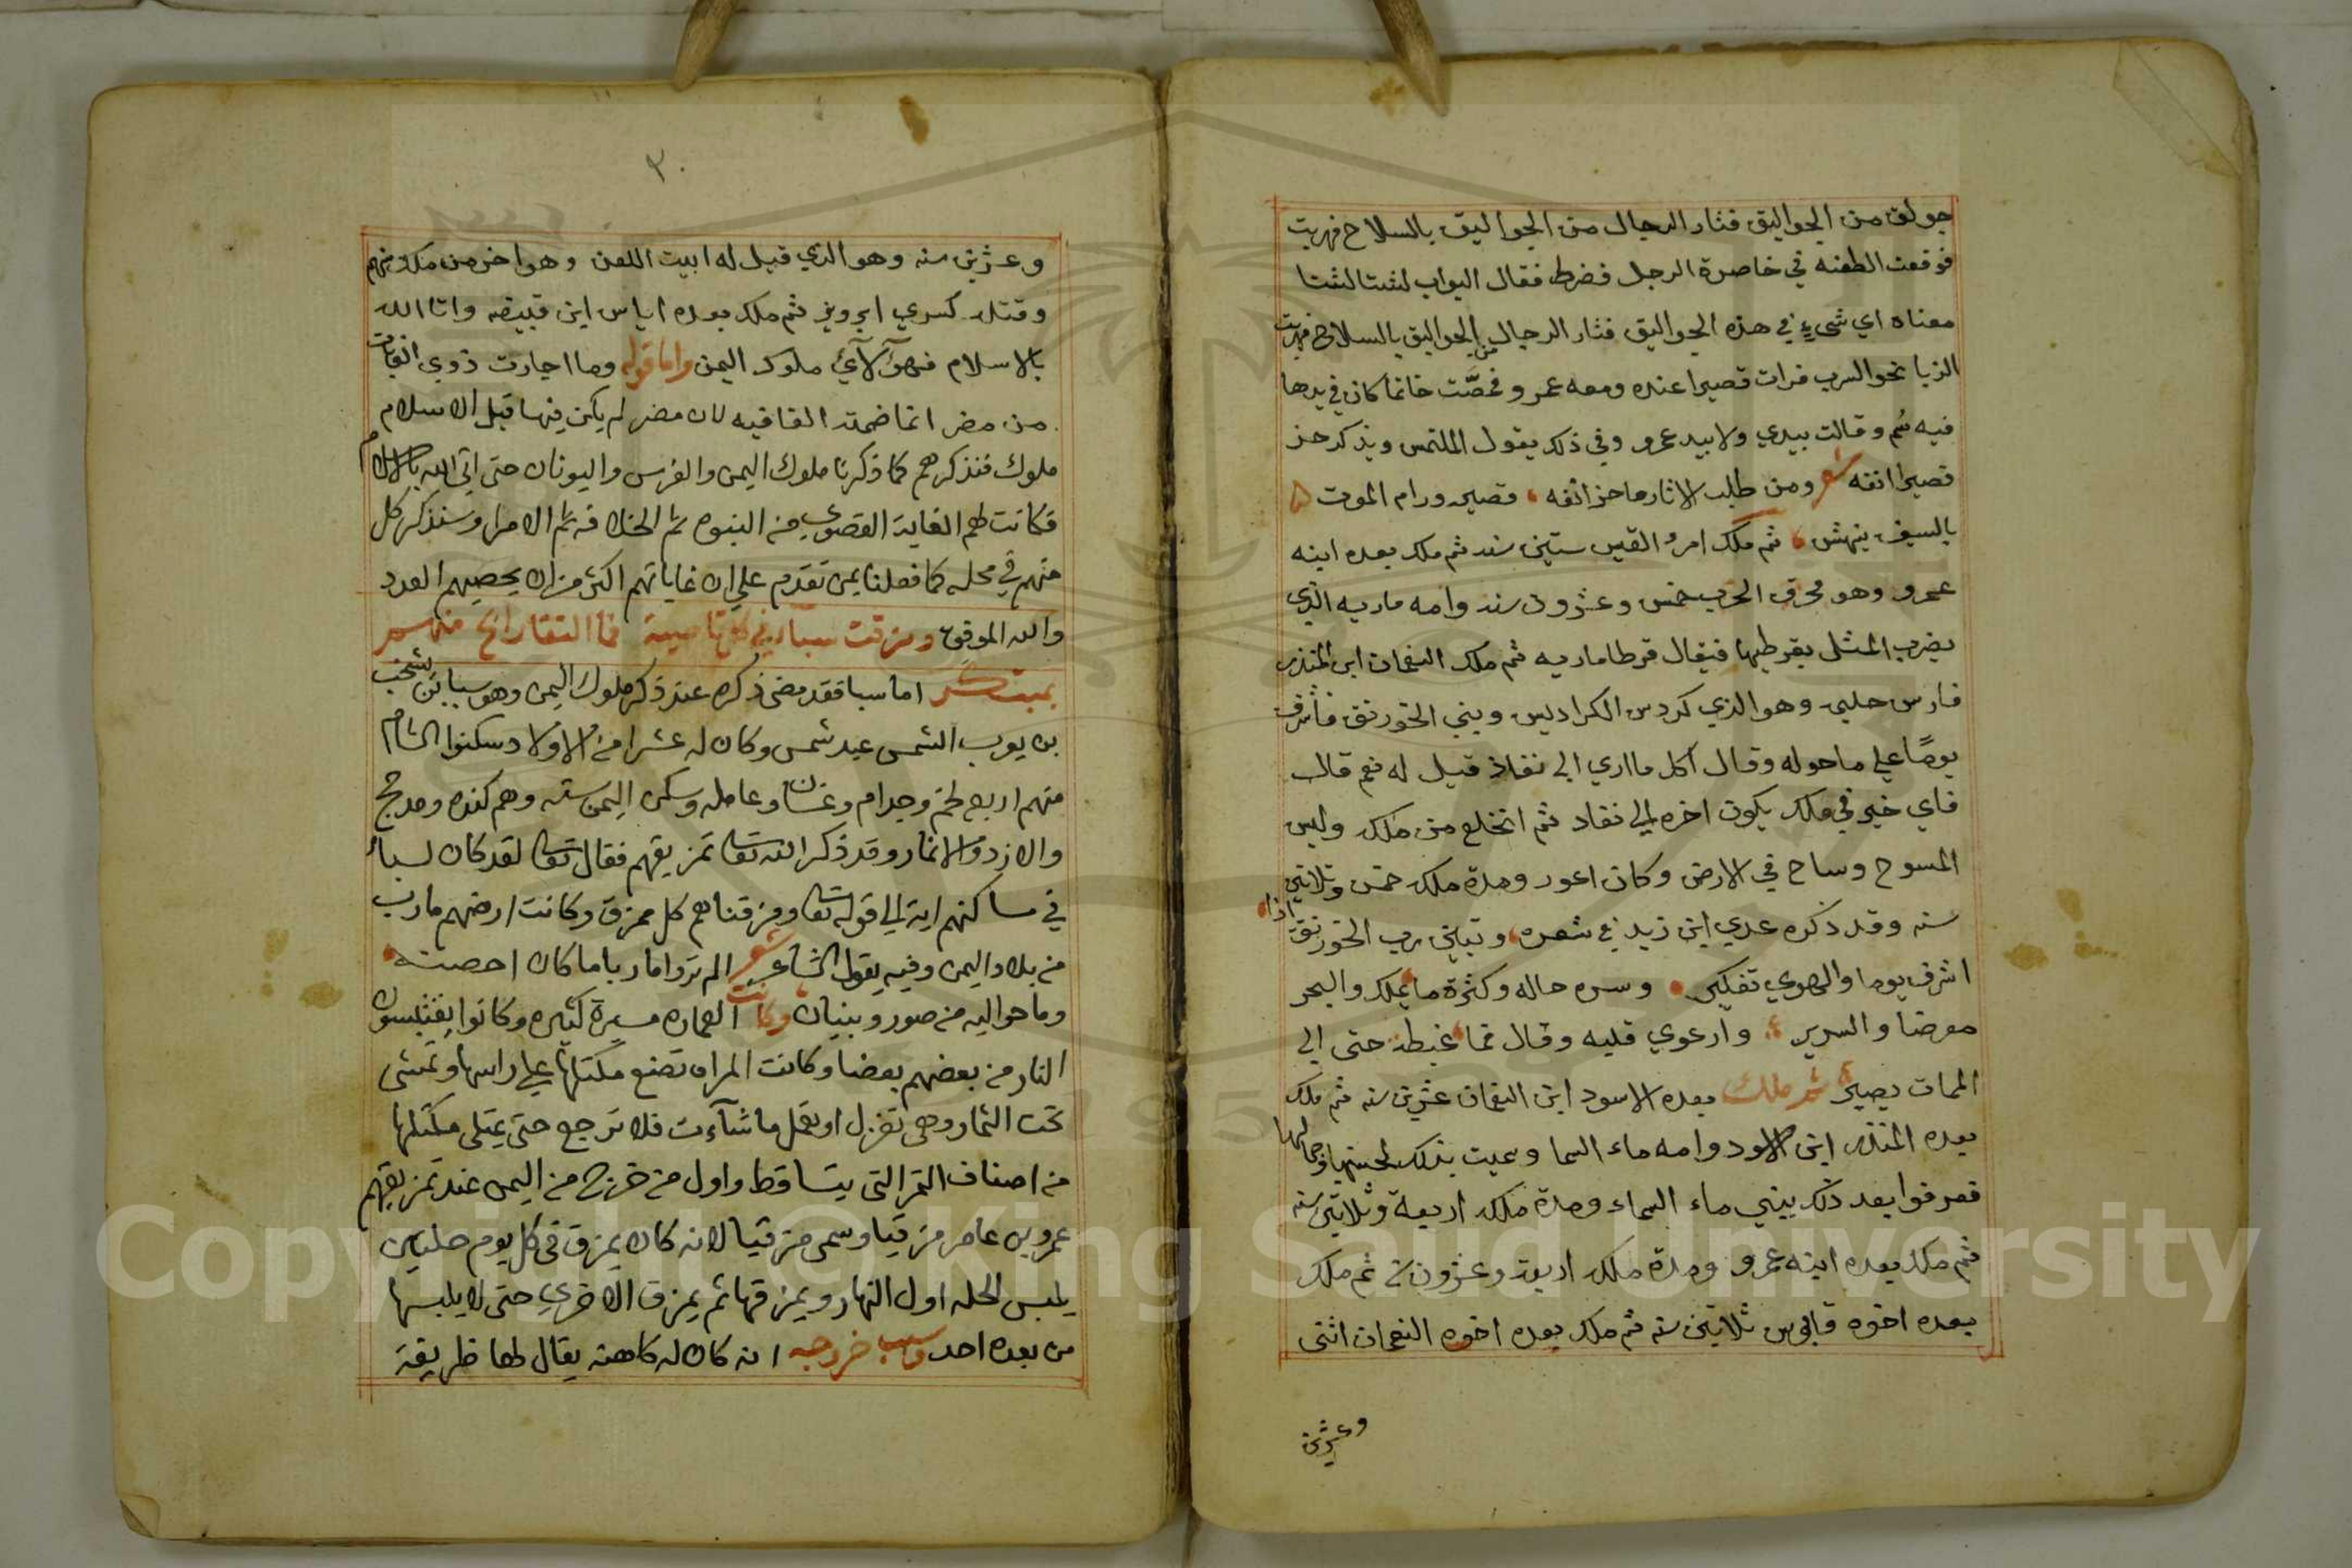 جولق من الجواليق فثار الرجال من الجواليق بالسلاح فهربت
فوقعت الطعنه في خاصرة الرجل فضرط فقال البواب لشتا لشتا
معناه اي شيء في هذه الجواليق فثار الرجال من الجواليق بالسلاح فهربت
الزبا نحو السرب فرات قصيرا عنده ومعه عمرو فمصّت خاتما كان في يدها
فيه سُم وقالت بيدي ولا بيد عمرو وفي ذلك يقول الملتمس ويذكر حز
قصيرا انفه شعر ومن طلب الاثار ما حز انفه ، قصير ورام الموت
بالسيف ينهش ، ثم ملك امرؤ القيس ستين سنه ثم ملك بعده ابنه
عمرو وهو محرق الحرب خمس وعشرون سنه وامه ماريه الذي
يضرب المثل بقرطيها فيقال قرطا ماريه ثم ملك النعمان ابن المنذر
فارس حليمه وهو الذي كردس الكراديس وبني الخورنق فاشرف
يومًا علي ما حوله وقال اكل ما اري الي نفاذ قيل له نعم قال
فاي خير في ملك يكون اخره الي نفاد ثم انخلع من ملكه ولبس
المسوح وساح في الارض وكان اعور ومدة ملكه خمس وثلاثين
سنه وقد ذكره عدي ابن زيد في شعره ، وتبين رب الخورنق اذا
اشرف يوما والهدي تفكير ، وسره حاله وكثرة ما يملك والبحر
معرضا والسدير ، وارعوي قلبه وقال فما غبطة حتى الي
الممات يصير ثم ملك بعده الاسود ابن النعمان عشرين سنه ثم ملك
بعده المنذر ابن الاسود وامه ماء السما وسميت بذلك لحسنها وجمالها
فعرفوا بعد ذلك ببني ماء السماء ومدة ملكه اربعة وثلاثين سنه
ثم ملك بعده ابنه عمرو ومدة ملكه اربعة وعشرون سنه ثم ملك
بعده اخوه قابوس ثلاثين سنه ثم ملك بعده اخوه النعمان اثنتى
وعشرين
٢٠
وعشرين سنه وهو الذي قيل له ابيت اللعن وهو اخر من ملك منهم
وقتله كسري ابرويز ثم ملك بعده اياس ابن قبيصه واتا الله
بالاسلام فهولآء ملوك اليمن واما قوله وما اجارت ذوي الغايات
من مضر انما ضمته القافيه لان مضر لم يكن فيها قبل الاسلام
ملوك فنذكرهم كما ذكرنا ملوك اليمن والفرس واليونان حتى اتى الله بالاسلام
فكانت لهم الغاية القصوي من النبوه ثم الخلافه ثم الامرا وسنذكر كل
منهم في محله كما فعلنا بمن تقدم علي ان غاياتهم اكثر من ان يحصيهم العدد
والله الموفق ومزقت سبا في كل قاصية فما التقا رائح منهم
بمبتكر اما سبا فقد مضى ذكره عند ذكر ملوك اليمن وهو سبا بن يشجب
بن يعرب الشمس عبد شمس وكان له عشرا من الاولاد سكنوا الشام
منهم اربعه لخم وجدام وغسان وعامله وسكن اليمن سته وهم كنده ومدحج
والازد والانمار وقد ذكر الله تعالى تمزيقهم فقال تعالى لقد كان لسبأ
في مساكنهم اية الي قوله تعالى ومزقناهم كل ممزق وكانت ارضهم مارب
من بلاد اليمن وفيه يقول الشاعر شعر الم تروا ماربا ما كان احصنه
وما حواليه من صور وبنيان وكانت العماره مسيرة كثيره وكانوا يقتبسون
النار من بعضهم بعضا وكانت المراه تضع مكتلها علي راسها وتمشى
تحت الثمار وهى تغزل او تعمل ما شآءت فلا ترجع حتى يمتلى مكتلها
من اصناف الثمر التى يتساقط واول من خرج من اليمن عند تمزيقهم
عمرو بن عامر مزقيا وسمى مزقيا لانه كان يمزق فى كل يوم حلتين
يلبس الحله اول النهار ويمزقها ثم يمزق الاخري حتى لا يلبسها
من بعده احد وسبب خروجه انه كان له كاهنه يقال لها ظريفة
Copyright © King Saud University